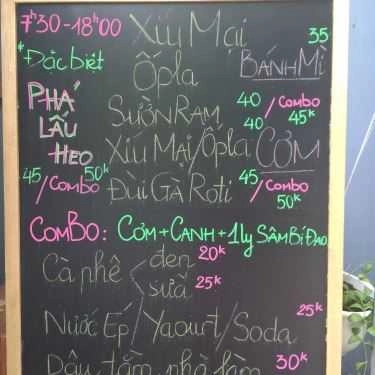 7h30-18h00 Xíu Mại 35
*Đặc biệt Ốpla BÁNH MÌ
PHÁ LẤU HEO
SƯỜN RAM 40/COMBO 45k
XÍU MẠI/ỐPLA 40 CƠM
45/COMBO 50k ĐÙI GÀ ROTI 45/COMBO 50k
COMBO: CƠM+CANH+1 ly SÂM BÍ ĐAO
Cà phê đen 20k
sữa 25k
25k
NƯỚC ÉP/Yaourt/Soda
Dâu tằm nhà làm 30k